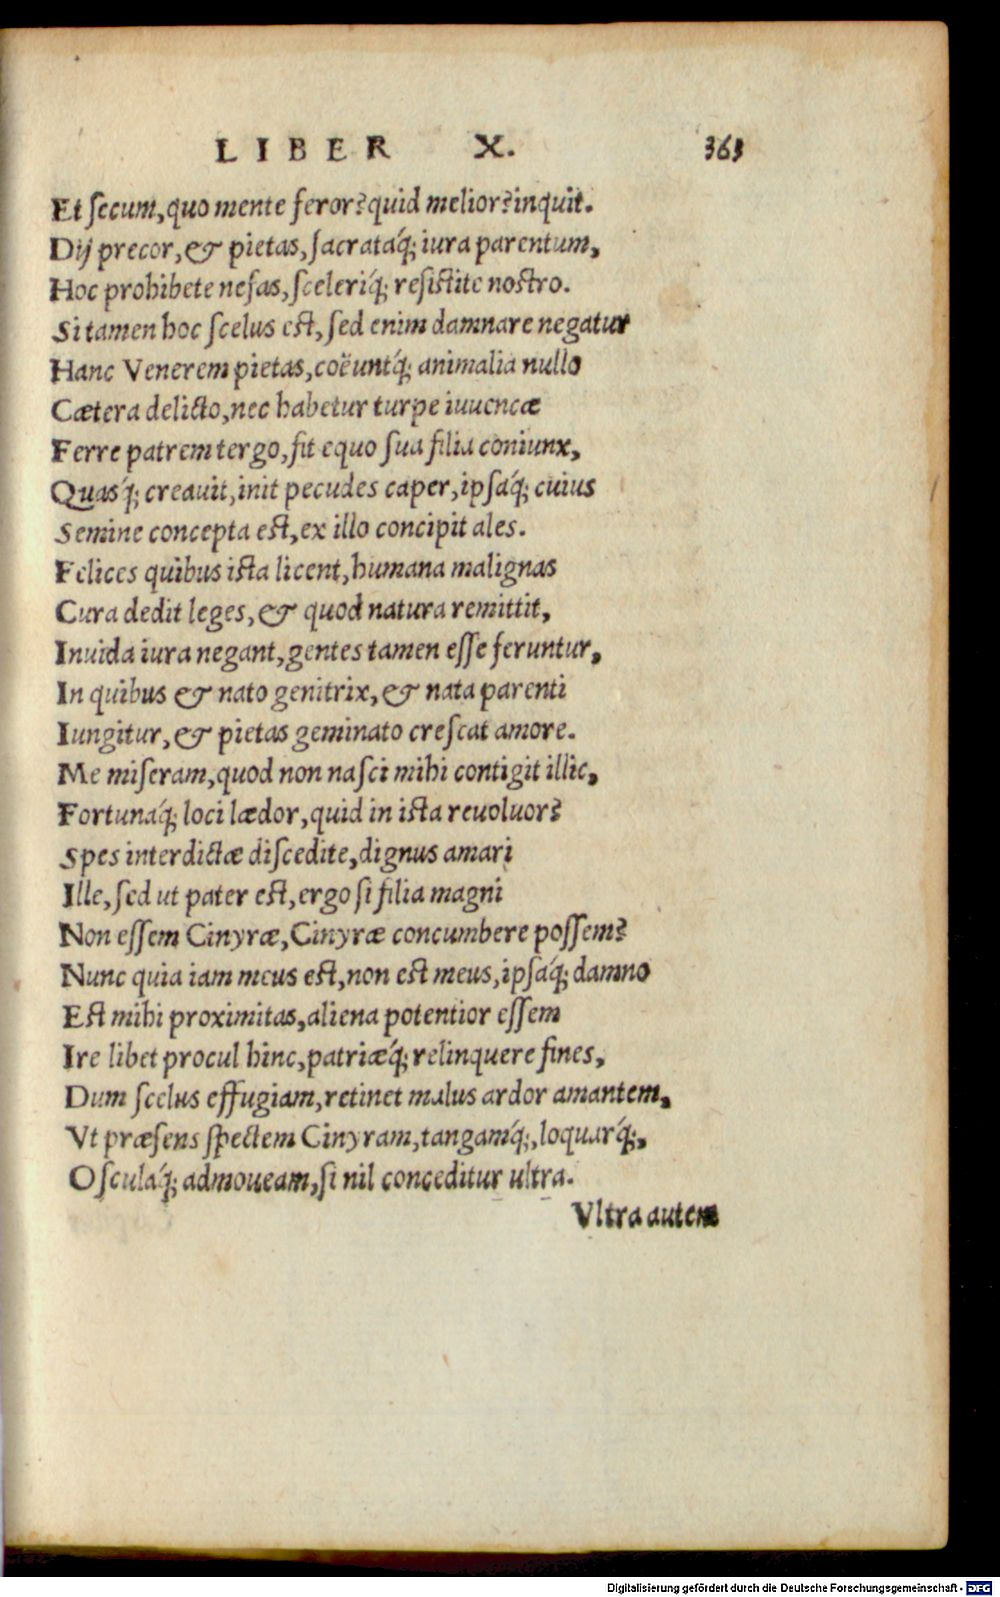 LIBER X. 363
Et secum, quo mente feror? quid melior? inquit.
Dij precor, & pietas, sacrataq́; iura parentum,
Hoc prohibete nefas, sceleriq́; resistite nostro.
Si tamen hoc scelus est, sed enim damnare negatur
Hanc Venerem pietas, coëuntq́; animalia nullo
Cætera delicto, nec habetur turpe iuuencæ
Ferre patrem tergo, fit equo sua filia coniunx,
Quasq́; creauit, init pecudes caper, ipsaq́; cuius
Semine concepta est, ex illo concipit ales.
Felices quibus ista licent, humana malignas
Cura dedit leges, & quod natura remittit,
Inuida iura negant, gentes tamen esse feruntur,
In quibus & nato genitrix, & nata parenti
Iungitur, & pietas geminato crescat amore.
Me miseram, quod non nasci mihi contigit illic,
Fortunaq́; loci lædor, quid in ista reuoluor?
Spes interdictæ discedite, dignus amari
Ille, sed ut pater est, ergo si filia magni
Non essem Cinyræ, Cinyræ concumbere possem?
Nunc quia iam meus est, non est meus, ipsaq́; damno
Est mihi proximitas, aliena potentior essem
Ire libet procul hinc, patriæq́; relinquere fines,
Dum scelus effugiam, retinet malus ardor amantem,
Vt præsens spectem Cinyram, tangamq́;, loquarq́;,
Osculaq́; admoueam, si nil conceditur ultra.
Vltra autem
Digitalisierung gefördert durch die Deutsche Forschungsgemeinschaft - DFG